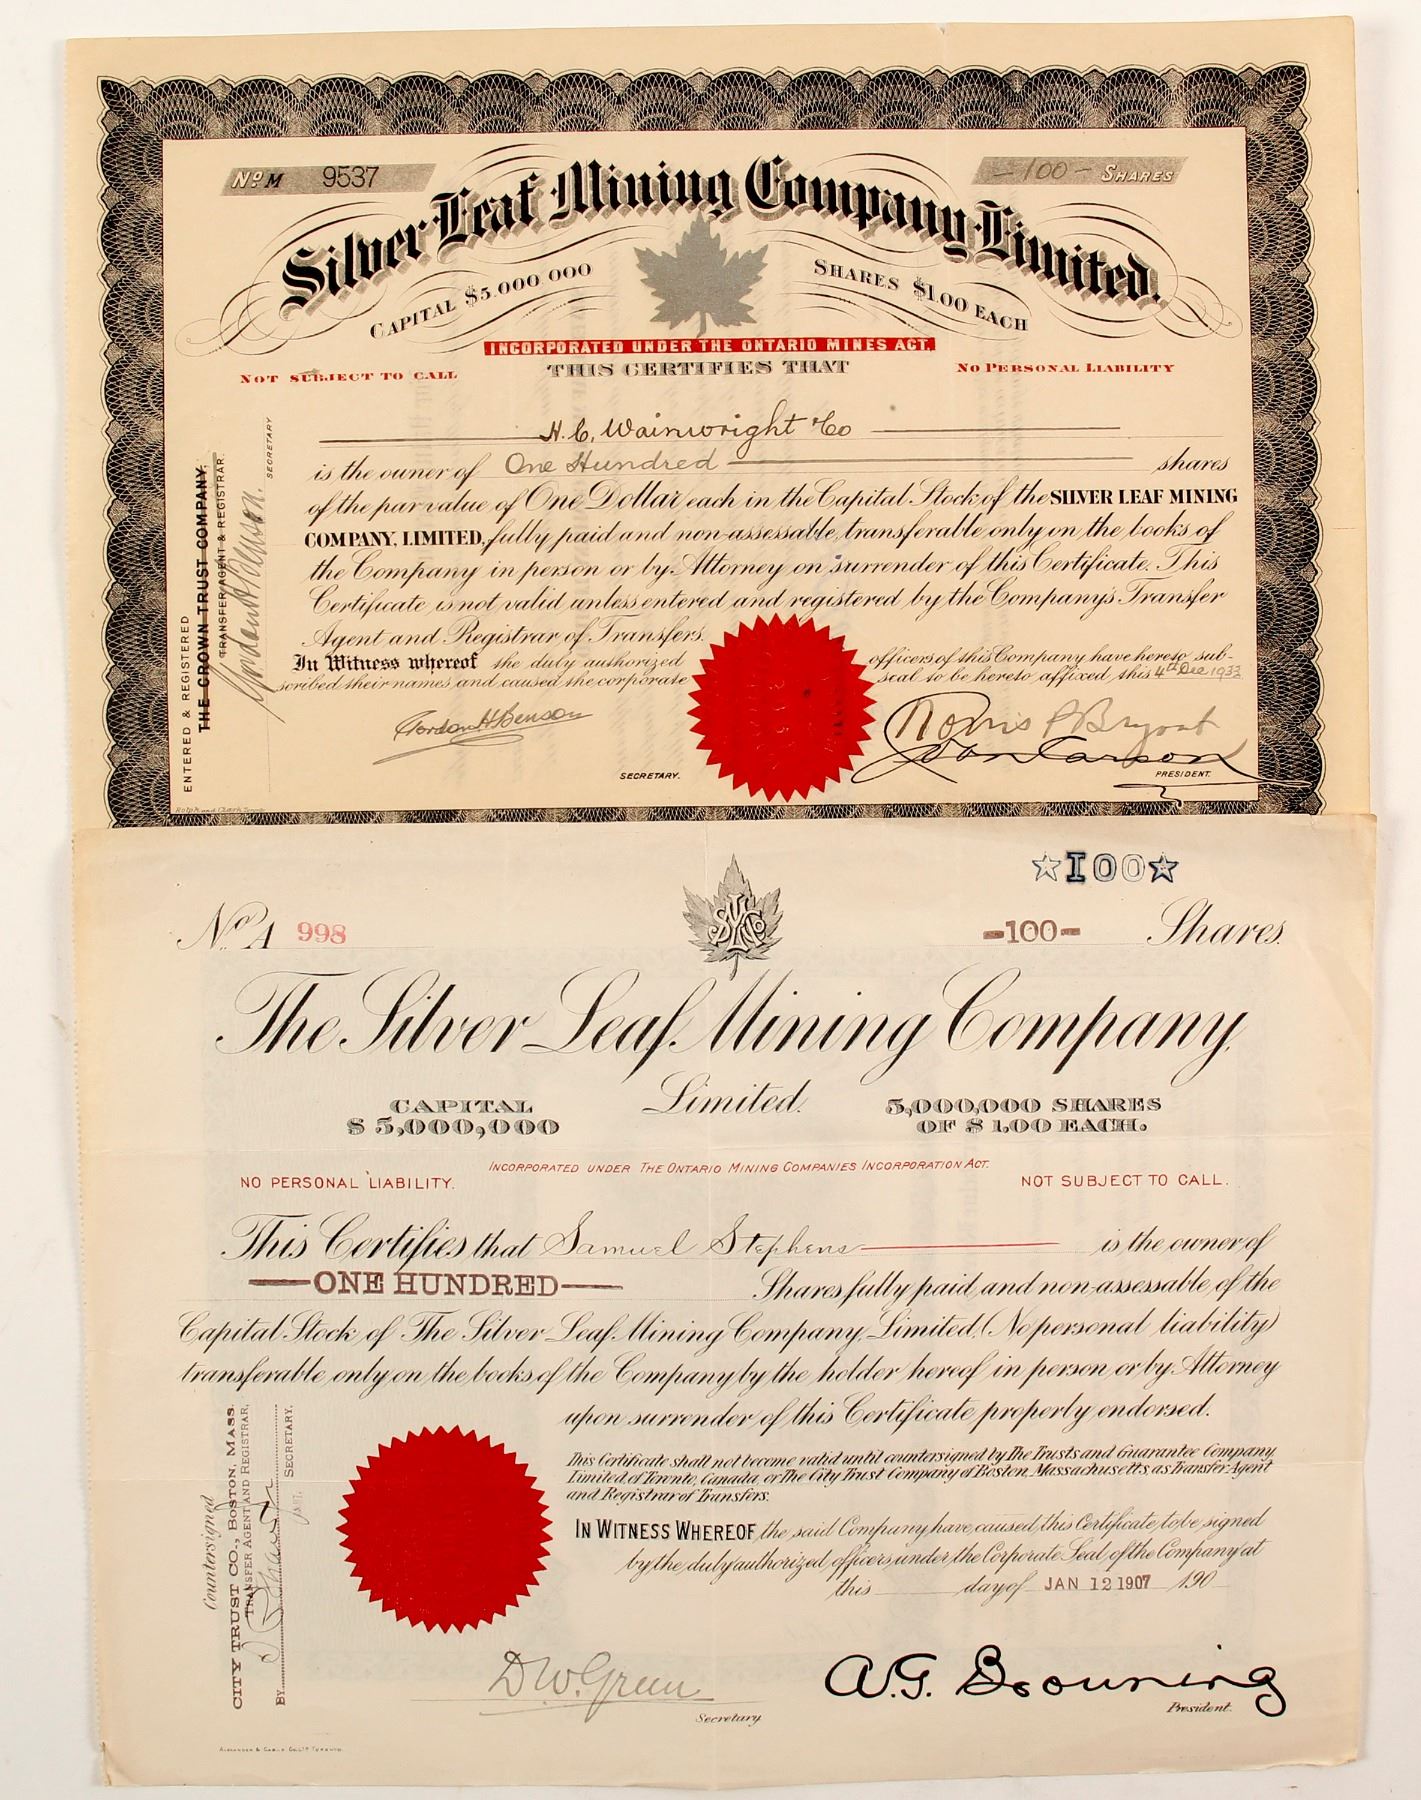 No M 9537
-100- SHARES
Silver Leaf Mining Company, Limited.
CAPITAL $5.000.000
SHARES $1.00 EACH
INCORPORATED UNDER THE ONTARIO MINES ACT.
NOT SUBJECT TO CALL
THIS CERTIFIES THAT
NO PERSONAL LIABILITY
H. C. Wainwright & Co
is the owner of One Hundred shares
of the par value of One Dollar each in the Capital Stock of the SILVER LEAF MINING
COMPANY, LIMITED, fully paid and non-assessable, transferable only on the books of
the Company in person or by Attorney on surrender of this Certificate. This
Certificate is not valid unless entered and registered by the Company's Transfer
Agent and Registrar of Transfers.
In Witness whereof the duly authorized officers of this Company have hereto sub-
scribed their names and caused the corporate seal to be hereto affixed this 4th Dec 1933
Gordon H. Benson
SECRETARY.
Norris P Bryant
PRESIDENT.
ENTERED & REGISTERED
THE CROWN TRUST COMPANY,
TRANSFER AGENT & REGISTRAR.
SECRETARY
Rolph and Clark
☆100☆
No A 998
SLMCo
-100- Shares.
The Silver Leaf Mining Company,
Limited.
CAPITAL
$5,000,000
5,000,000 SHARES
OF $1.00 EACH.
INCORPORATED UNDER THE ONTARIO MINING COMPANIES INCORPORATION ACT.
NO PERSONAL LIABILITY.
NOT SUBJECT TO CALL.
This Certifies that Samuel Stephens is the owner of
—ONE HUNDRED— Shares fully paid and non-assessable of the
Capital Stock of The Silver Leaf Mining Company, Limited, (No personal liability)
transferable only on the books of the Company by the holder hereof in person or by Attorney
upon surrender of this Certificate properly endorsed.
This Certificate shall not become valid until countersigned by The Trusts and Guarantee Company,
Limited, of Toronto, Canada, or The City Trust Company of Boston, Massachusetts, as Transfer Agent
and Registrar of Transfers.
IN WITNESS WHEREOF the said Company have caused this Certificate to be signed
by the duly authorized officers under the Corporate Seal of the Company at
this day of JAN 12 1907 190
D W. Green
Secretary
A.G. Browning
President.
Countersigned
CITY TRUST CO., BOSTON, MASS.
TRANSFER AGENT AND REGISTRAR,
BY
SECRETARY.
ALEXANDER & CABLE CO. LTD TORONTO.